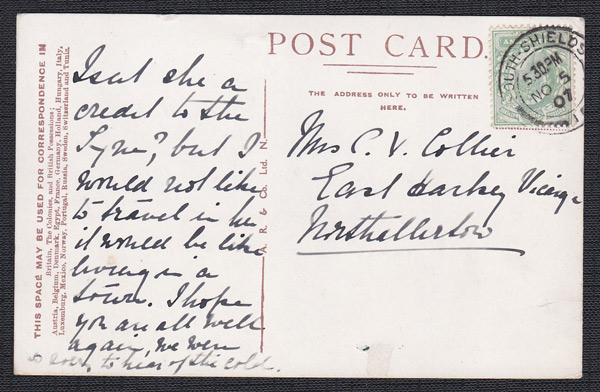 POST CARD.
THE ADDRESS ONLY TO BE WRITTEN
HERE.
THIS SPACE MAY BE USED FOR CORRESPONDENCE IN
Britain, The Colonies, and British Possessions;
Austria, Belgium, Denmark, Egypt, France, Germany, Holland, Hungary, Italy,
Luxemburg, Mexico, Norway, Portugal, Russia, Sweden, Switzerland and Tunis.
Isnt she a
credit to the
Tyne? but I
would not like
to travel in her
it would be like
living in a
town. I hope
you are all well
again, we were
so sorry to hear of the cold.
A. R. & Co. Ltd. N.
SOUTH SHIELDS
5.30PM
NO 5
07
1
Mrs C. V. Collier
East Harlsey Vicarage
Northallerton